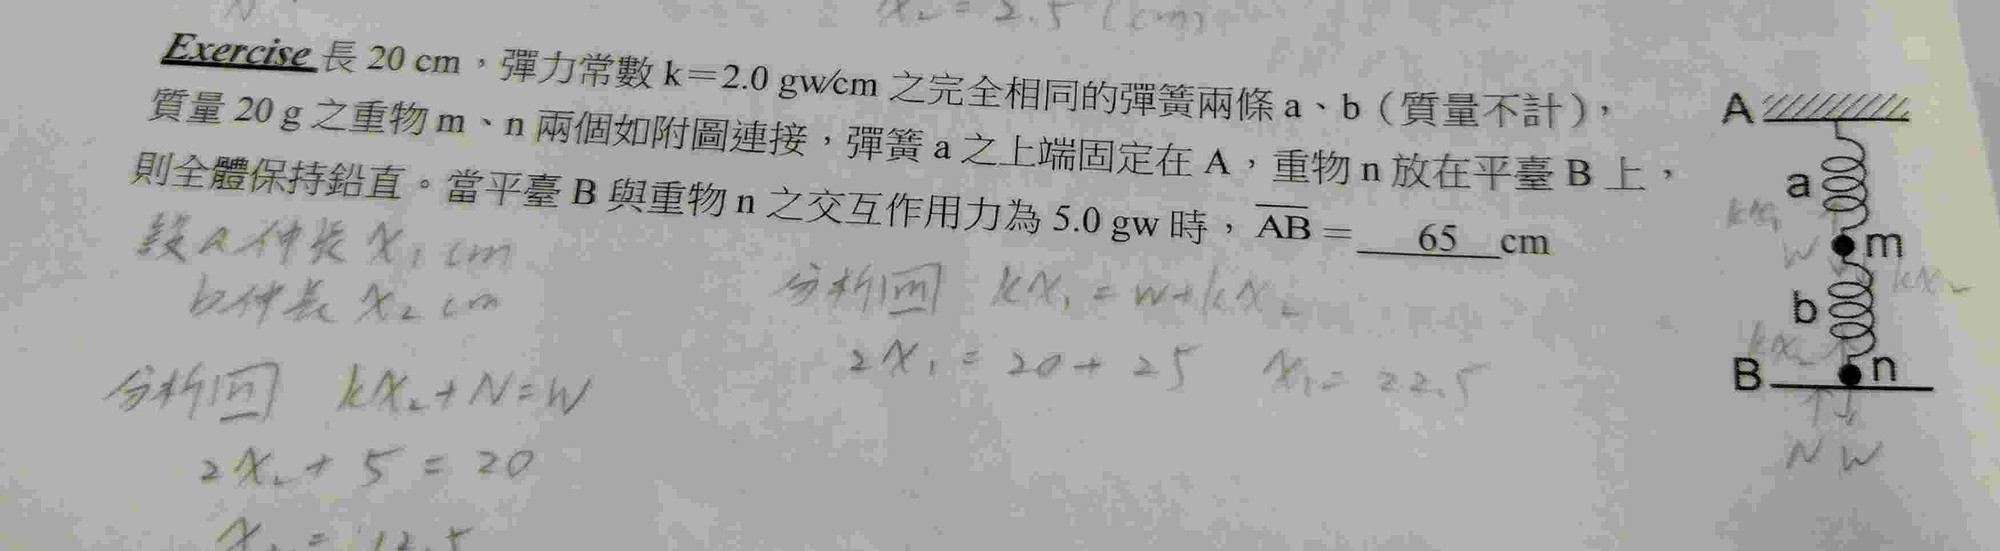 x₂ = 2.5 (cm)
Exercise 長 20 cm，彈力常數 k＝2.0 gw/cm 之完全相同的彈簧兩條 a、b（質量不計），
質量 20 g 之重物 m、n 兩個如附圖連接，彈簧 a 之上端固定在 A，重物 n 放在平臺 B 上，
則全體保持鉛直。當平臺 B 與重物 n 之交互作用力為 5.0 gw 時，AB＝ 65 cm
設 a 伸長 x₁ cm
b 伸長 x₂ cm
分析 n
kx₂ + N = W
2x₂ + 5 = 20
x₂ = 12.5
分析 m
kx₁ = W + kx₂
2x₁ = 20 + 25 x₁ = 22.5
A
a
kx₁
m
W
kx₂
b
kx₂
B
n
N W